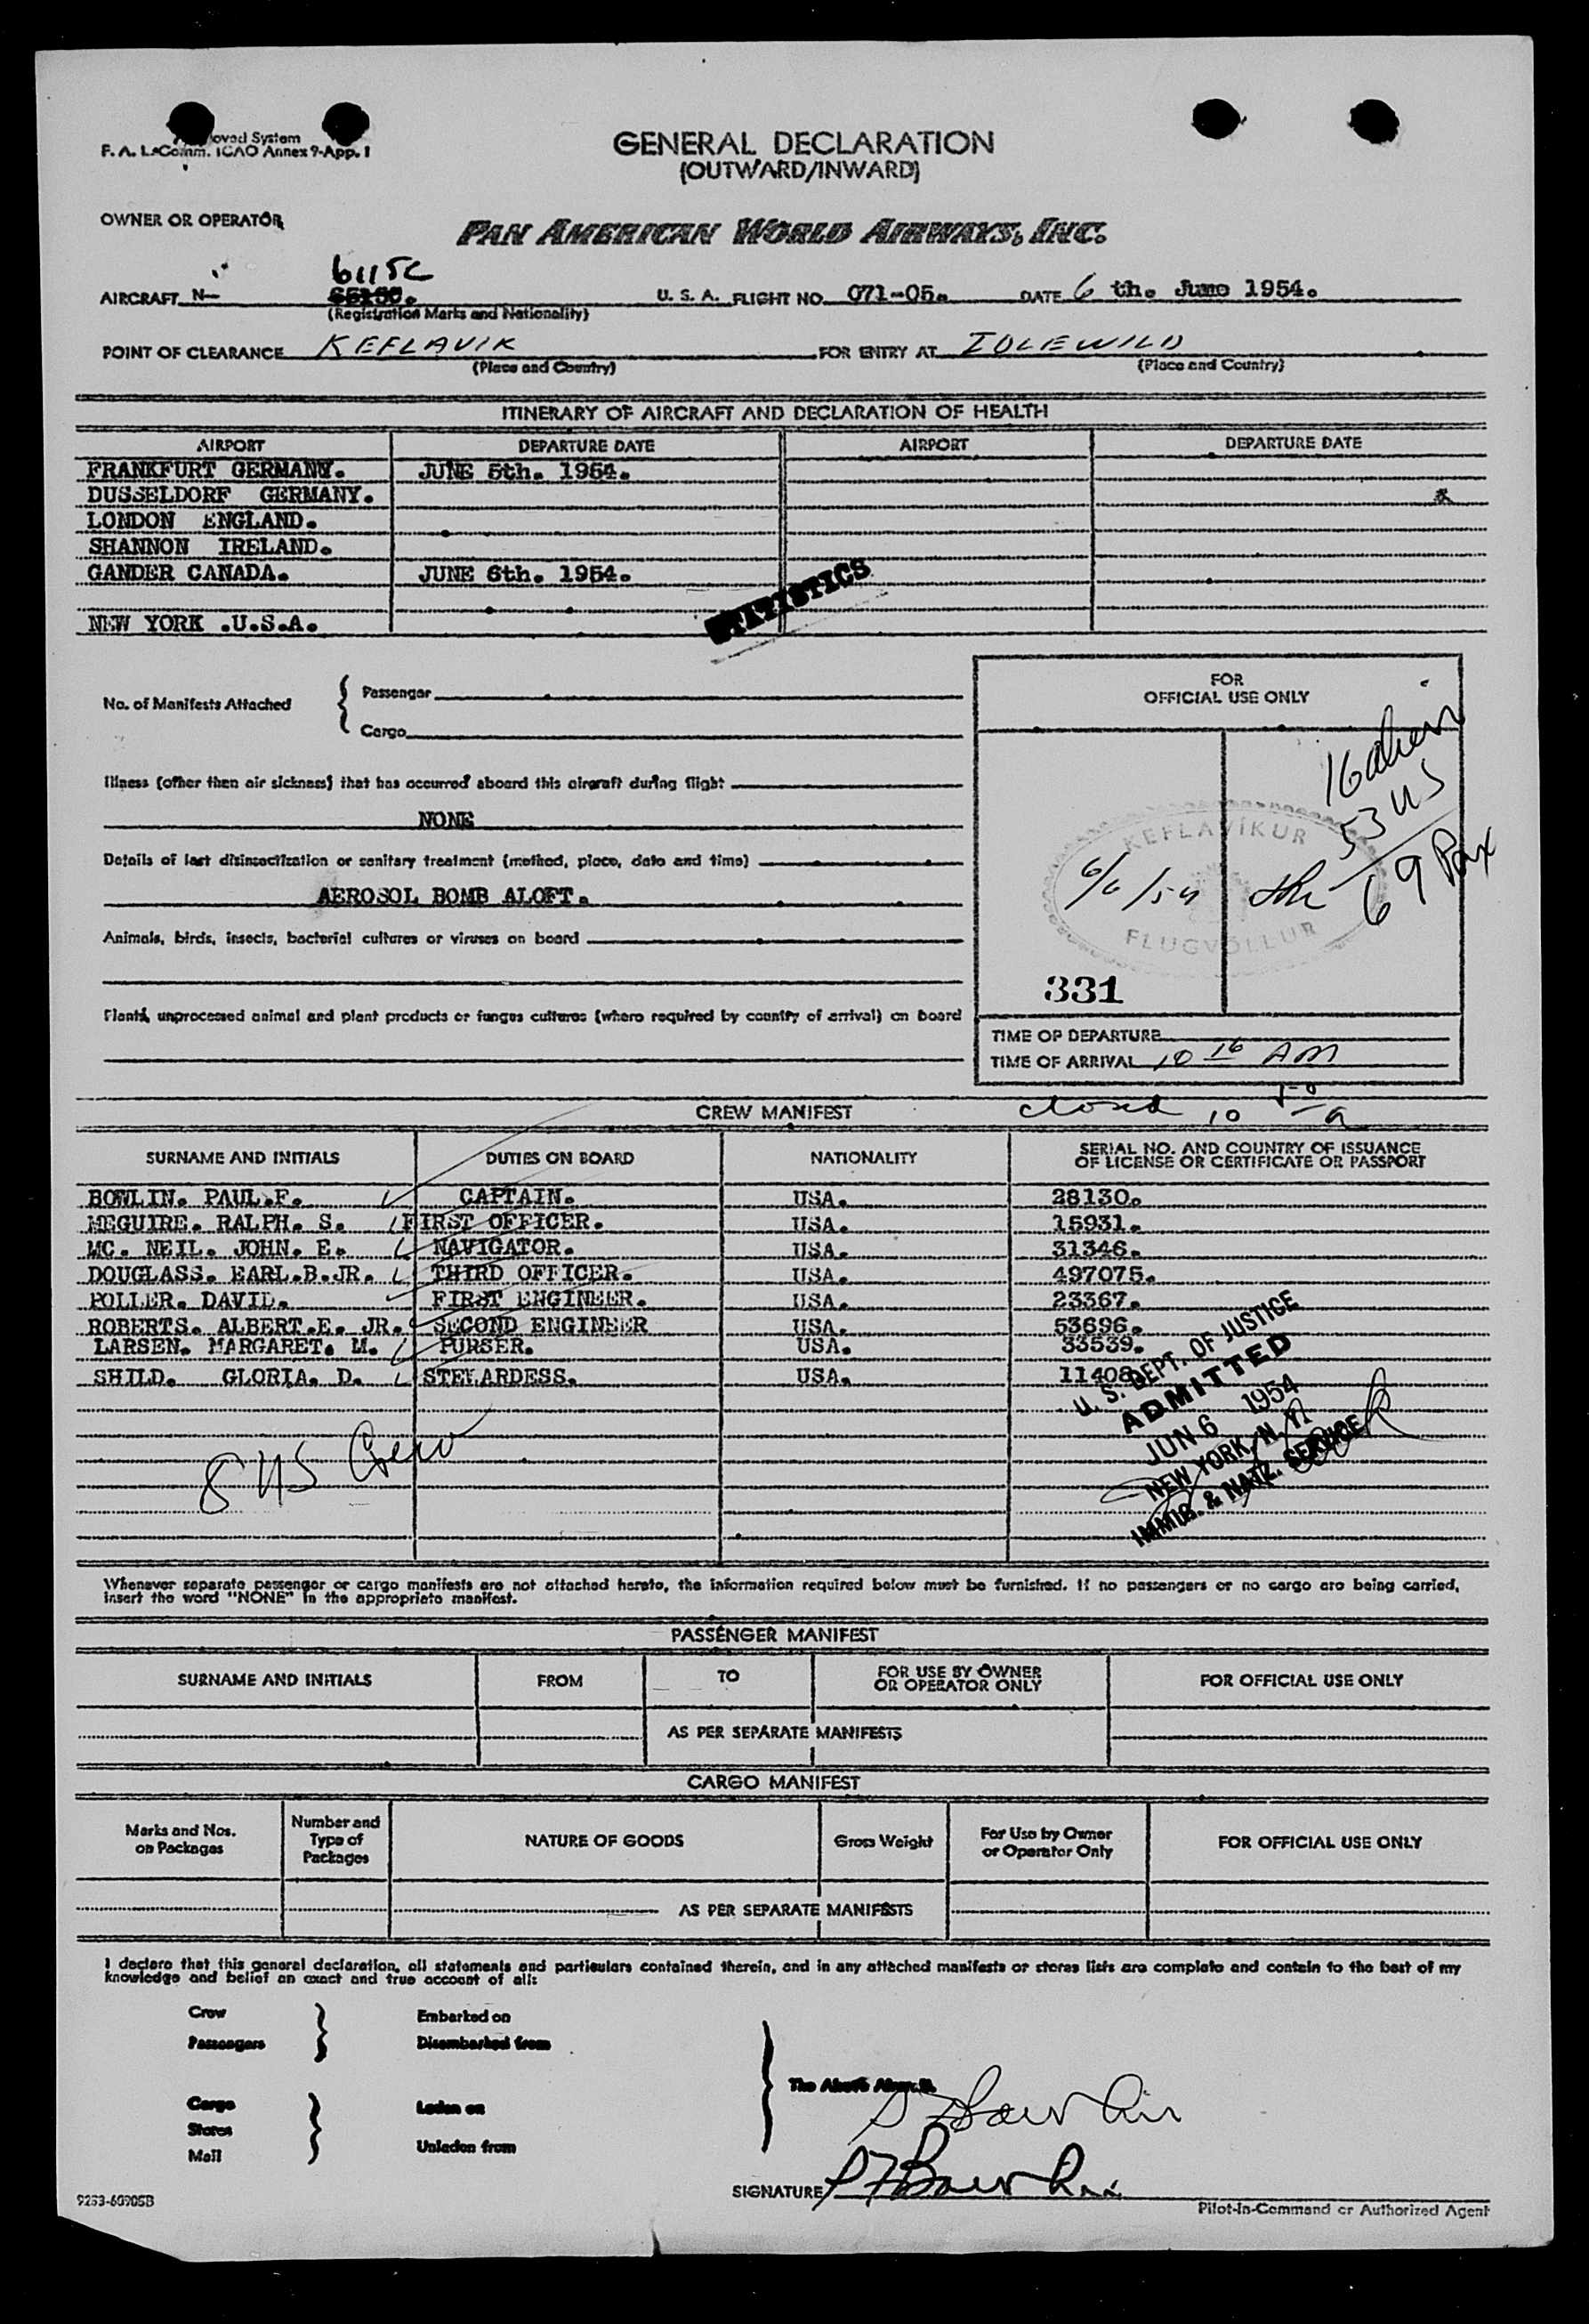 Approved System
F. A. L. Comm. ICAO Annex 9-App. I
GENERAL DECLARATION
(OUTWARD/INWARD)
OWNER OR OPERATOR
PAN AMERICAN WORLD AIRWAYS, INC.
6115C
AIRCRAFT N- U. S. A. FLIGHT NO. 071-05. DATE 6 th. June 1954.
(Registration Marks and Nationality)
POINT OF CLEARANCE KEFLAVIK FOR ENTRY AT IDLEWILD
(Place and Country) (Place and Country)
ITINERARY OF AIRCRAFT AND DECLARATION OF HEALTH
AIRPORT DEPARTURE DATE AIRPORT DEPARTURE DATE
FRANKFURT GERMANY. JUNE 5th. 1954.
DUSSELDORF GERMANY.
LONDON ENGLAND.
SHANNON IRELAND.
GANDER CANADA. JUNE 6th. 1954.
STATISTICS
NEW YORK .U.S.A.
No. of Manifests Attached { Passenger
Cargo
FOR
OFFICIAL USE ONLY
16 alien
53 US
69 Pax
Illness (other than air sickness) that has occurred aboard this aircraft during flight
NONE
Details of last disinsectization or sanitary treatment (method, place, date and time)
AEROSOL BOMB ALOFT.
Animals, birds, insects, bacterial cultures or viruses on board
Plants, unprocessed animal and plant products or fungus cultures (where required by country of arrival) on board
KEFLAVÍKUR
6/6/54
FLUGVÖLLUR
331
TIME OF DEPARTURE
TIME OF ARRIVAL 10 16 AM
closed 10 50 a
CREW MANIFEST
SURNAME AND INITIALS DUTIES ON BOARD NATIONALITY SERIAL NO. AND COUNTRY OF ISSUANCE
OF LICENSE OR CERTIFICATE OR PASSPORT
BOWLIN. PAUL.F. CAPTAIN. USA. 28130.
MEGUIRE. RALPH. S. FIRST OFFICER. USA. 15931.
MC. NEIL. JOHN. E. NAVIGATOR. USA. 31346.
DOUGLASS. EARL.B.JR. THIRD OFFICER. USA. 497075.
POLLER. DAVID. FIRST ENGINEER. USA. 23367.
ROBERTS. ALBERT.E. JR. SECOND ENGINEER USA. 53696.
LARSEN. MARGARET. M. PURSER. USA. 33539.
SHILD. GLORIA. D. STEWARDESS. USA. 11408
8 US Crew
U. S. DEPT. OF JUSTICE
ADMITTED
JUN 6 1954
NEW YORK, N. Y.
IMMIG. & NATZ. SERVICE
Whenever separate passenger or cargo manifests are not attached hereto, the information required below must be furnished. If no passengers or no cargo are being carried,
insert the word "NONE" in the appropriate manifest.
PASSENGER MANIFEST
SURNAME AND INITIALS FROM TO FOR USE BY OWNER
OR OPERATOR ONLY FOR OFFICIAL USE ONLY
AS PER SEPARATE MANIFESTS
CARGO MANIFEST
Marks and Nos.
on Packages Number and
Type of
Packages NATURE OF GOODS Gross Weight For Use by Owner
or Operator Only FOR OFFICIAL USE ONLY
AS PER SEPARATE MANIFESTS
I declare that this general declaration, all statements and particulars contained therein, and in any attached manifests or stores lists are complete and contain to the best of my
knowledge and belief an exact and true account of all:
Crew Embarked on
Passengers Disembarked from
The Above Aircraft.
Cargo Laden on
Stores
Mail Unladen from
P F Bowlin
SIGNATURE P F Bowlin
9253-60905B Pilot-in-Command or Authorized Agent